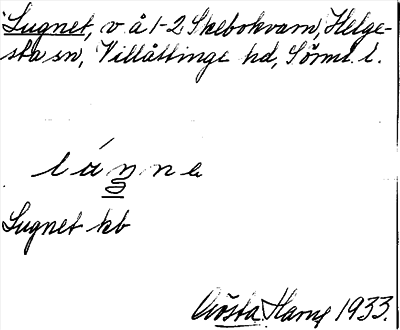 Lugnet, v å 1-2 Skebokvarn, Helge-
sta sn, Villåttinge hd, Sörml. l.
Lugnet kb
Gösta Harne 1933.